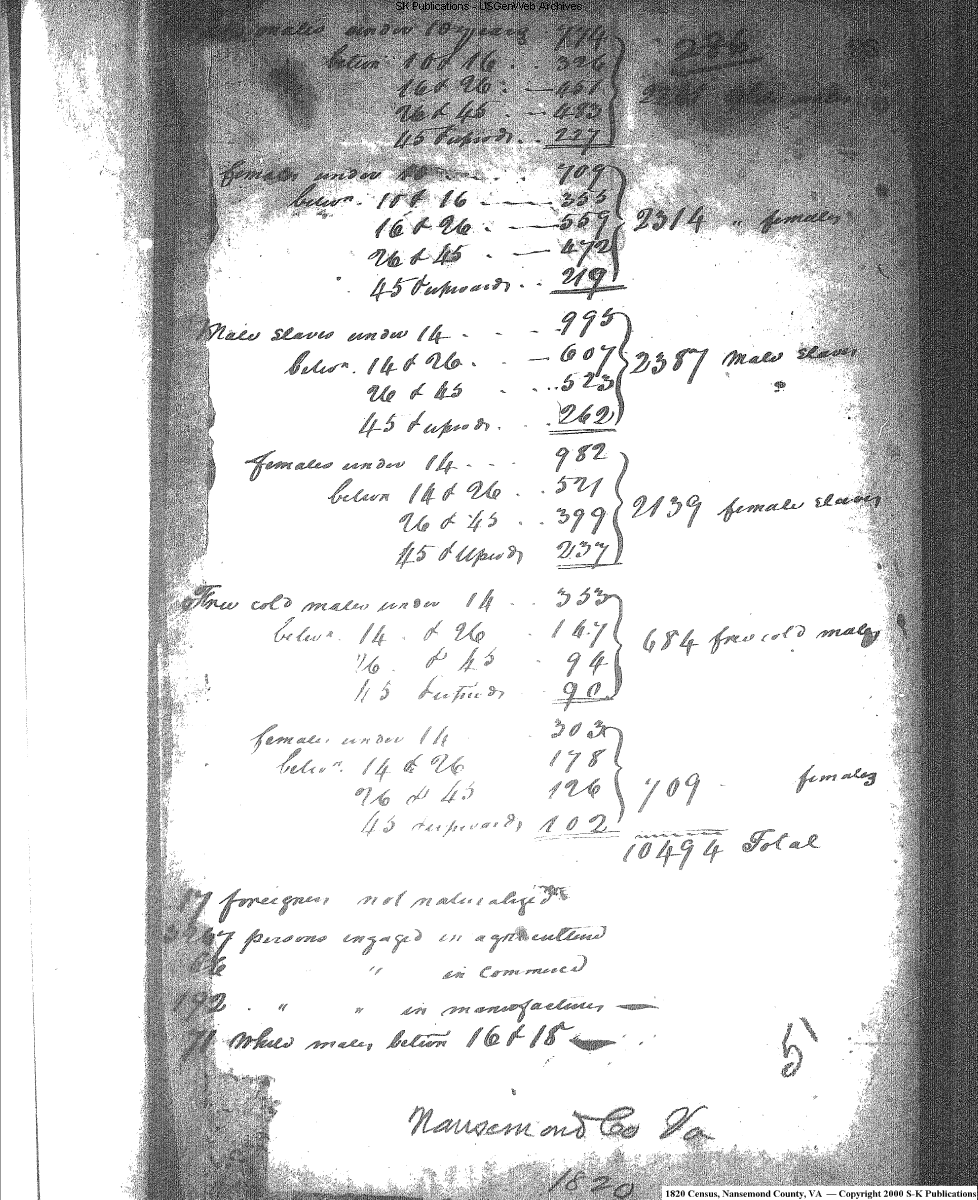 SK Publications - USGenWeb Archives
males under 10 years 774
betwn 10 & 16 . . 326
236
16 & 26 . — 451
26 & 45 . — 483
45 & upwds . . 227
females under 10 . . . 709
betwn. 10 & 16 . —— 355
16 & 26 . —— 559
2314 " females
26 & 45 . — 472
45 & upwards . . 219
Male Slaves under 14 . . . 995
betwn. 14 & 26 . . — 607
2387 Male Slaves
26 & 45 . . . 523
45 & upwds . . . 262
females under 14 . . . 982
betwn 14 & 26 . . 521
2139 female slaves
26 & 45 . . 399
45 & Upwds 237
Free cold males under 14 . . 353
betwn. 14 . & 26 . 147
684 free cold males
26 . & 45 . 94
45 & upwds 90
females under 14 303
betwn. 14 & 26 178
26 & 45 126
709 females
45 & upwards 102
10494 Total
17 foreigners not naturalized
persons engaged in agriculture
" in Commerce
192 . " " in manufactures —
71 White males betwn 16 & 18
5
Nansemond Co Va
1820
1820 Census, Nansemond County, VA — Copyright 2000 S-K Publications